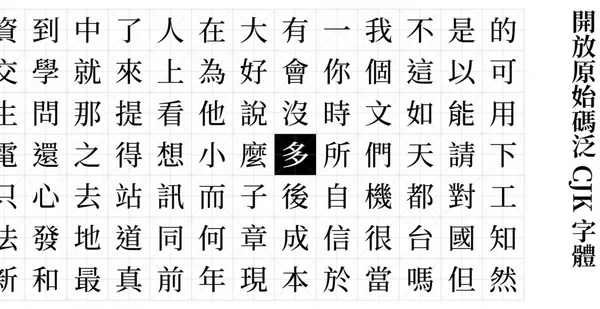 開放原始碼泛 CJK 字體
的是不我一有大在人了中到資
可以這個你會好為上來就學交
用能如文時沒說他看提那問生
下請天們所多麼小想得之還電
工對都機自後子而訊站去心只
知國台很信成章何同道地發法
然但嗎當於本現年前真最和新